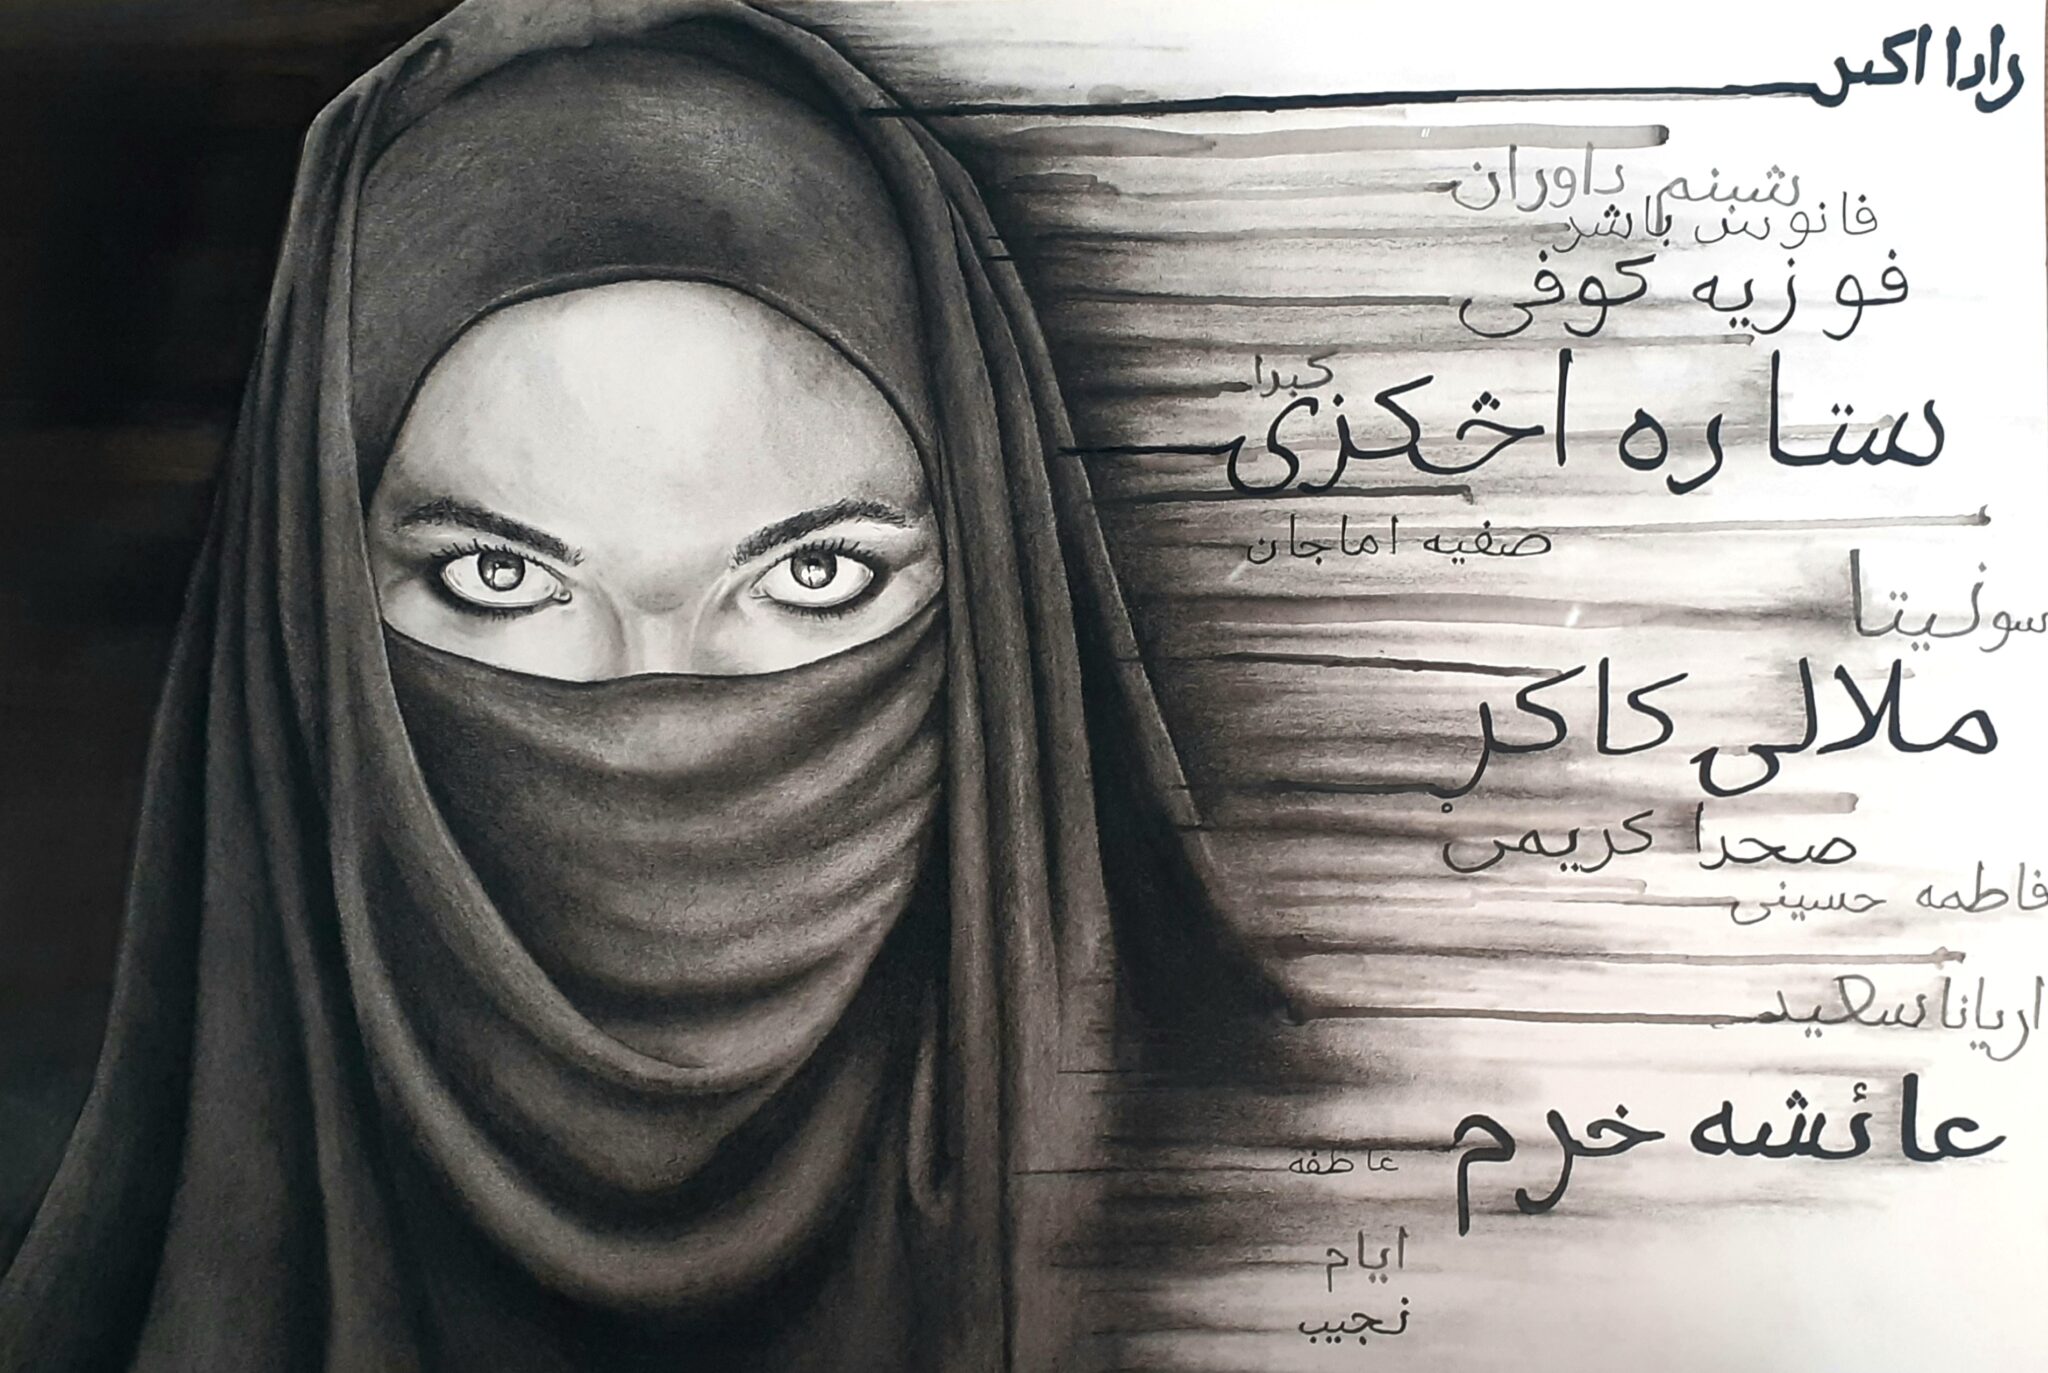 رادا اکبر
شبنم داوران
فانوس باشر
فوزیه کوفی
کبرا
ستاره اڅکزی
صفیه اماجان
سوزیتا
ملالی کاکړ
صحرا کریمی
فاطمه حسینی
اریانا سعید
عائشه خرم
عاطفه
ایام
نجیب